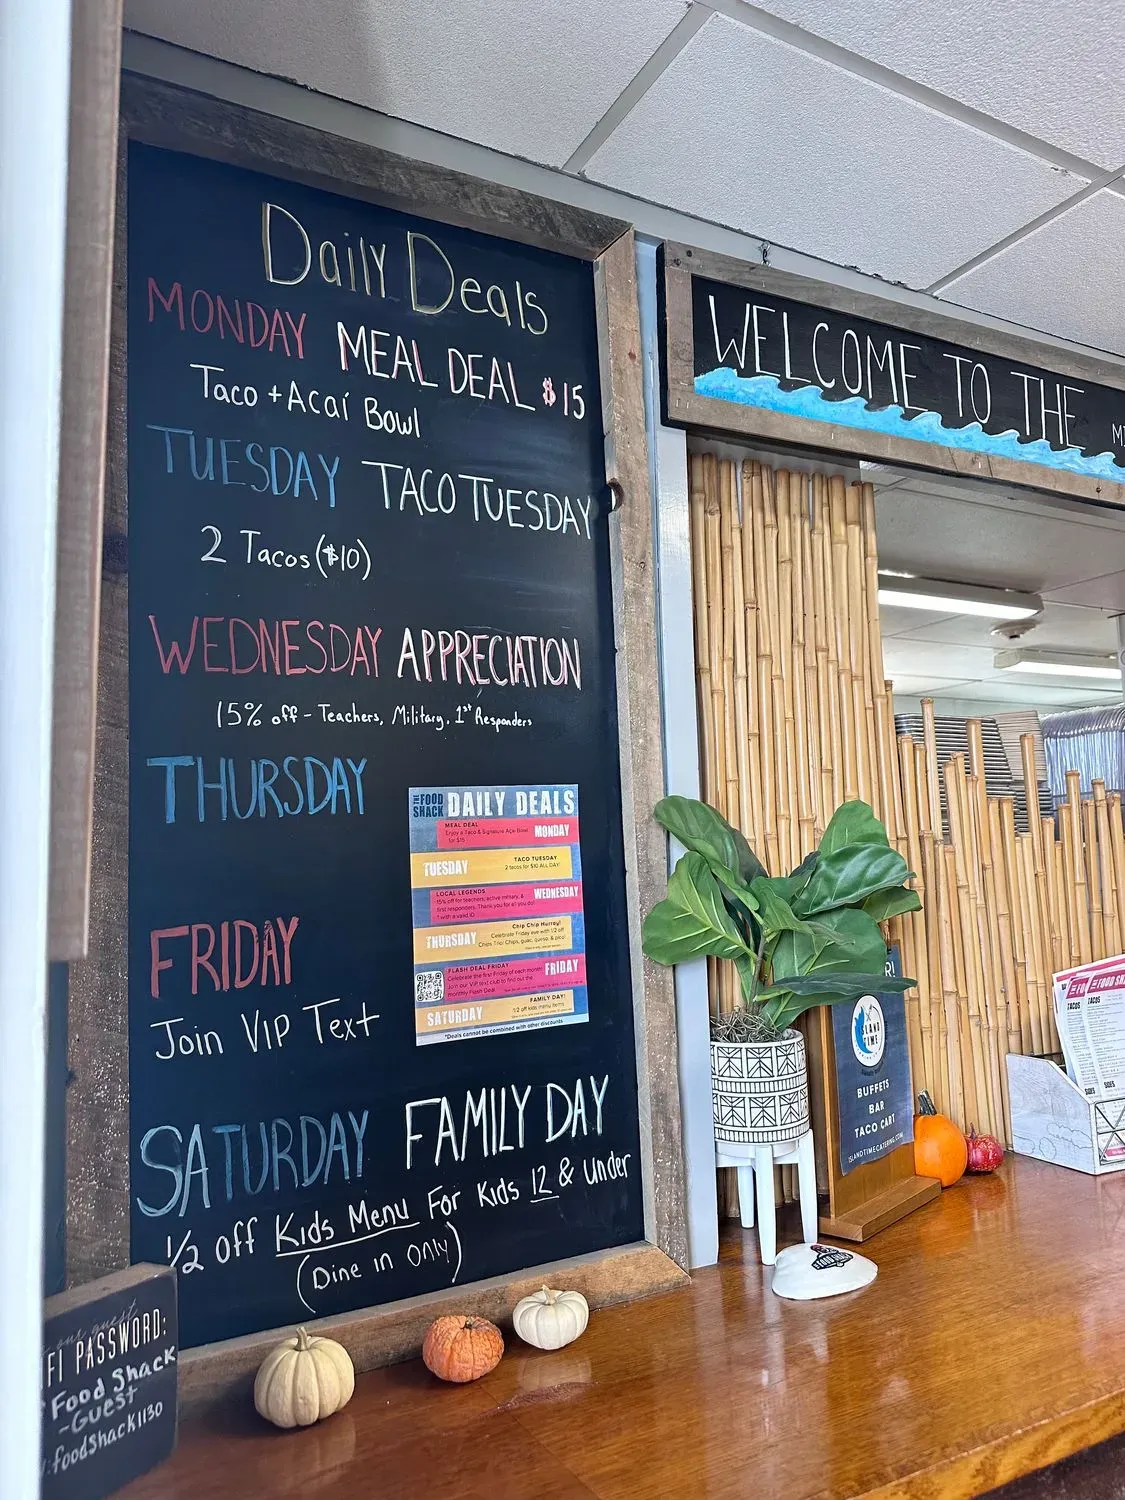 Daily Deals
MONDAY MEAL DEAL $15
Taco + Acaí Bowl
TUESDAY TACO TUESDAY
2 Tacos ($10)
WEDNESDAY APPRECIATION
15% off - Teachers, Military, 1st Responders
THURSDAY
FRIDAY
Join VIP Text
SATURDAY FAMILY DAY
1/2 off Kids Menu For Kids 12 & under
(Dine in Only)
THE FOOD SHACK DAILY DEALS
MEAL DEAL
Enjoy a Taco & Signature Açai Bowl
for $15
MONDAY
TUESDAY
TACO TUESDAY
2 tacos for $10 ALL DAY!
LOCAL LEGENDS
15% off for teachers, active military, &
first responders. Thank you for all you do!
* with a valid ID
WEDNESDAY
THURSDAY
Chip Chip Hurray!
Celebrate Friday eve with 1/2 off
Chips Trio: Chips, guac, queso, & pico
FLASH DEAL FRIDAY
Celebrate the first Friday of each month
Join our VIP text club to find out the
monthly Flash Deal
FRIDAY
SATURDAY
FAMILY DAY!
1/2 off kids menu items
*Deals cannot be combined with other discounts
WELCOME TO THE
FI PASSWORD:
Food Shack
-Guest
foodshack1130
ISLAND
TIME
BUFFETS
BAR
TACO CART
ISLANDTIMECATERING.COM
FOOD SHACK
TACOS
SIDES